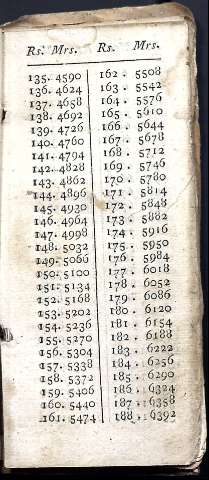 Rs. Mrs.
135. 4590
136. 4624
137. 4658
138. 4692
139. 4726
140. 4760
141. 4794
142. 4828
143. 4862
144. 4896
145. 4930
146. 4964
147. 4998
148. 5032
149. 5066
150. 5100
151. 5134
152. 5168
153. 5202
154. 5236
155. 5270
156. 5304
157. 5338
158. 5372
159. 5406
160. 5440
161. 5474
Rs. Mrs.
162. 5508
163. 5542
164. 5576
165. 5610
166. 5644
167. 5678
168. 5712
169. 5746
170. 5780
171. 5814
172. 5848
173. 5882
174. 5916
175. 5950
176. 5984
177. 6018
178. 6052
179. 6086
180. 6120
181. 6154
182. 6188
183. 6222
184. 6256
185. 6290
186. 6324
187. 6358
188. 6392